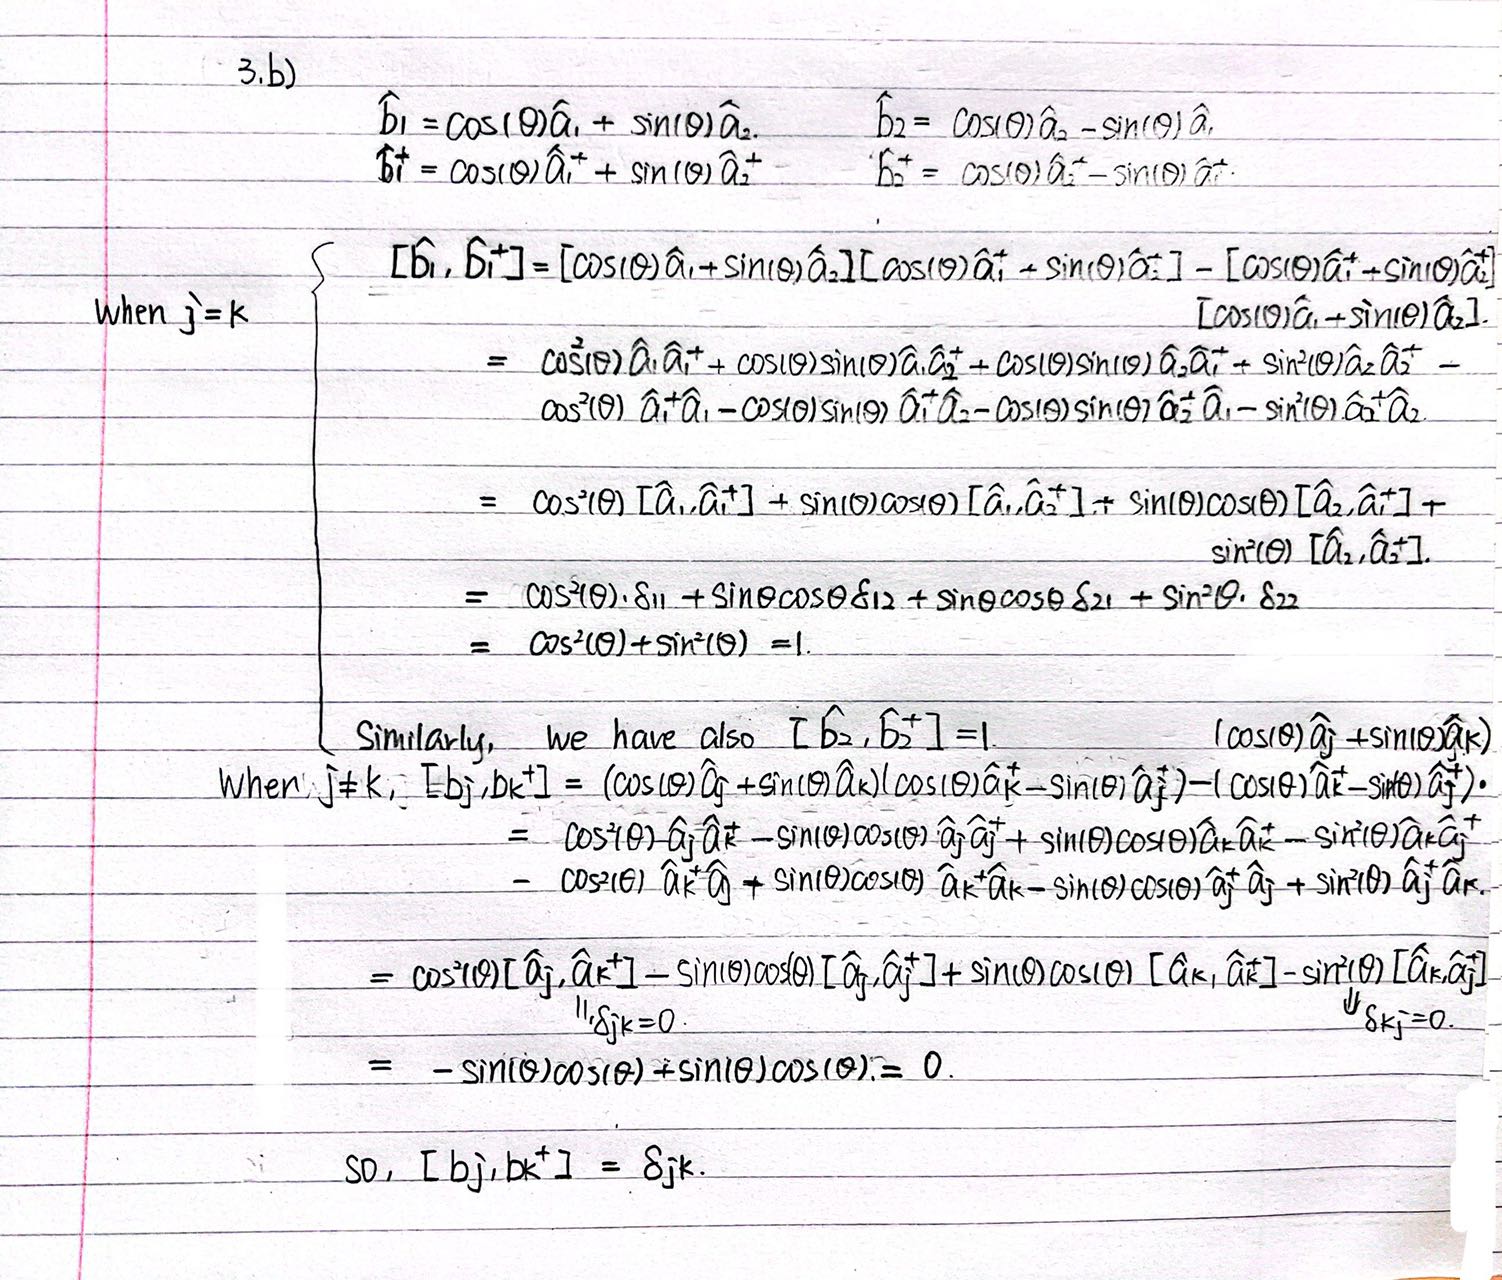 3.b)
b̂₁ = cos(θ)â₁ + sin(θ)â₂. b̂₂ = cos(θ)â₂ - sin(θ)â₁
b̂₁⁺ = cos(θ)â₁⁺ + sin(θ)â₂⁺ b̂₂⁺ = cos(θ)â₂⁺ - sin(θ)â₁⁺.
[b̂₁, b̂₁⁺] = [cos(θ)â₁ + sin(θ)â₂][cos(θ)â₁⁺ + sin(θ)â₂⁺] - [cos(θ)â₁⁺ + sin(θ)â₂⁺]
When j=k [cos(θ)â₁ + sin(θ)â₂].
= cos²(θ)â₁â₁⁺ + cos(θ)sin(θ)â₁â₂⁺ + cos(θ)sin(θ)â₂â₁⁺ + sin²(θ)â₂â₂⁺ -
cos²(θ) â₁⁺â₁ - cos(θ)sin(θ) â₁⁺â₂ - cos(θ)sin(θ) â₂⁺â₁ - sin²(θ)â₂⁺â₂.
= cos²(θ)[â₁,â₁⁺] + sin(θ)cos(θ)[â₁,â₂⁺] + sin(θ)cos(θ)[â₂,â₁⁺] +
sin²(θ) [â₂,â₂⁺].
= cos²(θ)·δ₁₁ + sinθcosθδ₁₂ + sinθcosθδ₂₁ + sin²θ·δ₂₂
= cos²(θ)+sin²(θ) =1.
Similarly, we have also [b̂₂, b̂₂⁺] =1. (cos(θ)âⱼ + sin(θ)âₖ)
When j≠k, [bⱼ,bₖ⁺] = (cos(θ)âⱼ + sin(θ)âₖ)(cos(θ)âₖ⁺ - sin(θ)âⱼ⁺) - (cos(θ)âₖ⁺ - sin(θ)âⱼ⁺)·
= cos²(θ)âⱼâₖ⁺ - sin(θ)cos(θ) âⱼâⱼ⁺ + sin(θ)cos(θ)âₖâₖ⁺ - sin²(θ)âₖâⱼ⁺
- cos²(θ) âₖ⁺âⱼ + sin(θ)cos(θ) âₖ⁺âₖ - sin(θ)cos(θ)âⱼ⁺âⱼ + sin²(θ) âⱼ⁺âₖ.
= cos²(θ)[âⱼ,âₖ⁺] - sin(θ)cos(θ)[âⱼ,âⱼ⁺] + sin(θ)cos(θ) [âₖ,âₖ⁺] - sin²(θ)[âₖ,âⱼ⁺]
|| δⱼₖ=0. ⇓ δₖⱼ=0.
= -sin(θ)cos(θ) + sin(θ)cos(θ) = 0.
so, [bⱼ,bₖ⁺] = δⱼₖ.